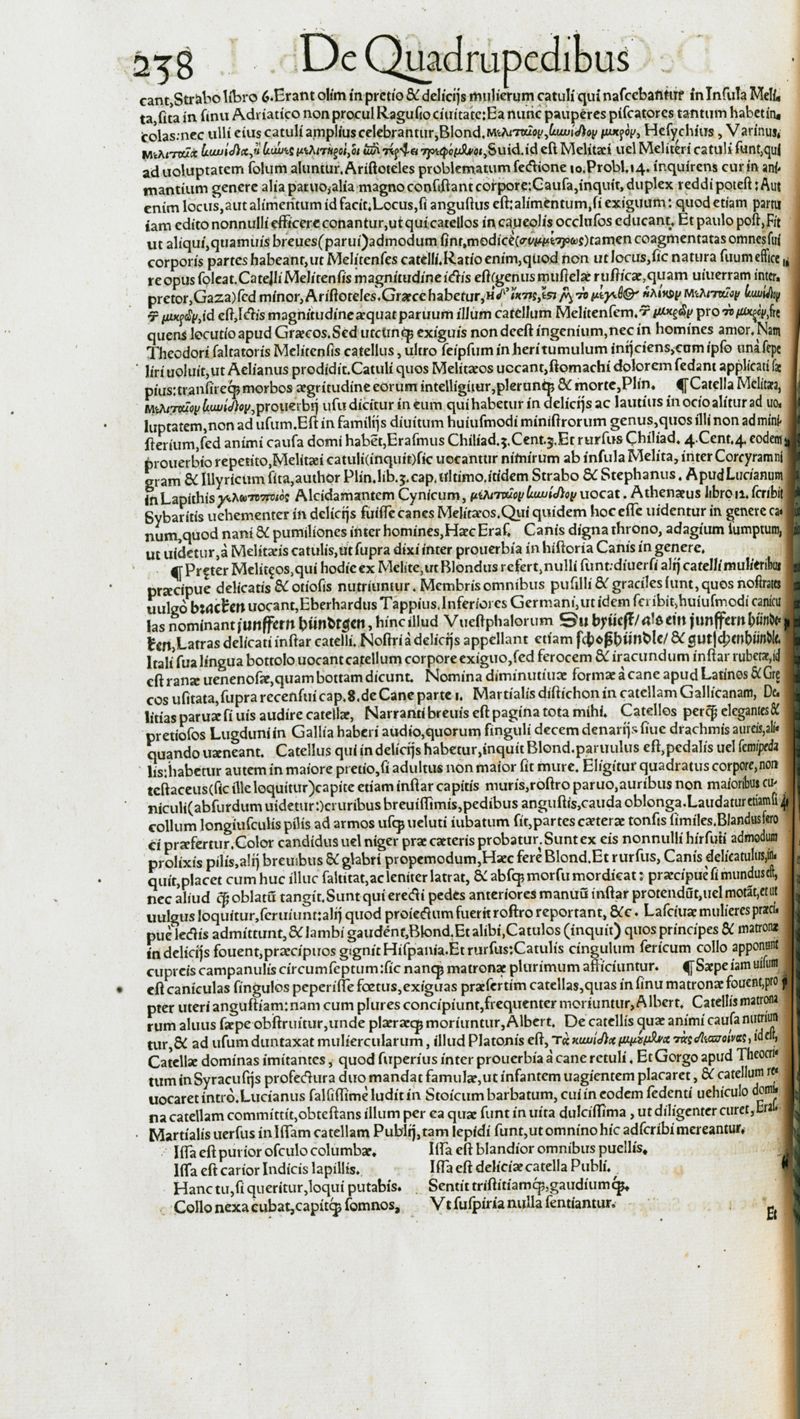 238 De Quadrupedibus
cant, Strabo libro 6. Erant olim in pretio & delicijs mulierum catuli qui nascebantur in Insula Meli,
ta, sita in sinu Adriatico non procul Ragusio ciuitate: Ea nunc pauperes piscatores tantum habet in,
colas: nec ulli eius catuli amplius celebrantur, Blond. Μελιταῖον, κυνίδιον μικρὸν, Hesychius, Varinus,
Suid. id est Melitæi uel Meliteri catuli sunt, qui
ad uoluptatem solum aluntur. Aristoteles problematum sectione 10. Probl. 14. inquirens cur in ani-
mantium genere alia paruo, alia magno consistant corpore: Causa, inquit, duplex reddi potest: Aut
enim locus, aut alimentum id facit. Locus, si angustus est: alimentum, si exiguum: quod etiam partu
iam edito nonnulli efficere conantur, ut qui catellos in caueolis occlusos educant. Et paulo post, Fit
ut aliqui, quamuis breues (parui) admodum sint, modicè (συμμέτρως) tamen coagmentatas omnes sui
corporis partes habeant, ut Melitenses catelli. Ratio enim, quod non ut locus, sic natura suum effice,
re opus soleat. Catelli Melitensis magnitudine ictis est (genus mustelæ rusticæ, quam uiuerram inter,
pretor, Gaza) sed minor, Aristoteles. Græce habetur, Η δ' ἴκτις, ἔστι μὲν τὸ μέγεθος ἡλίκον Μελιταῖον κυνίδιον
τ μικρῶν, id est, Ictis magnitudine æquat paruum illum catellum Melitensem. τ μικρῶν pro τὸ μικρὸν, fre
quens locutio apud Græcos. Sed utcunq; exiguis non deest ingenium, nec in homines amor. Nam
Theodori saltatoris Melitensis catellus, ultro seipsum in heri tumulum inijciens, cum ipso unà sepe
liri uoluit, ut Aelianus prodidit. Catuli quos Melitæos uocant, stomachi dolorem sedant applicati sæ
pius: transireq; morbos ægritudine eorum intelligitur, plerunq; & morte, Plin. ¶ Catella Melitæa,
Μελιταῖον κυνίδιον, prouerbij usu dicitur in eum qui habetur in delicijs ac lautius in ocio alitur ad uo,
luptatem, non ad usum. Est in familijs diuitum huiusmodi ministrorum genus, quos illi non ad mini-
sterium, sed animi causa domi habẽt, Erasmus Chiliad. 3. Cent. 3. Et rursus Chiliad. 4. Cent. 4. eodem
prouerbio repetito, Melitæi catuli (inquit) sic uocantur nimirum ab insula Melita, inter Corcyram ni
gram & Illyricum sita, author Plin. lib. 3. cap. ultimo. itidem Strabo & Stephanus. Apud Lucianum
in Lapithis γελωτοποιὸς Alcidamantem Cynicum, μελιταῖον κυνίδιον uocat. Athenæus libro 12. scribit
Sybaritis uehementer in delicijs fuisse canes Melitæos. Qui quidem hoc esse uidentur in genere ca,
num, quod nani & pumiliones inter homines, Hæc Eras. Canis digna throno, adagium sumptum,
ut uidetur, à Melitæis catulis, ut supra dixi inter prouerbia in historia Canis in genere.
¶ Pręter Melitęos, qui hodie ex Melite, ut Blondus refert, nulli sunt: diuersi alij catelli mulieribus
præcipue delicatis & otiosis nutriuntur. Membris omnibus pusilli & graciles sunt, quos nostrates
uulgò bracken uocant, Eberhardus Tappius. Inferiores Germani, ut idem scribit, huiusmodi canicu
las nominant junffern hündtgen, hinc illud Vuestphalorum Du bylist/ als ein junffern hünde-
ken, Latras delicati instar catelli. Nostri à delicijs appellant etiam schoßhündle/ & gutschenhündle.
Itali sua lingua bottolo uocant catellum corpore exiguo, sed ferocem & iracundum instar rubetæ, id
est ranæ uenenosæ, quam bottam dicunt. Nomina diminutiuæ formæ à cane apud Latinos & Grę
cos usitata, supra recensui cap. 8. de Cane parte 1. Martialis distichon in catellam Gallicanam, De,
litias paruæ si uis audire catellæ, Narranti breuis est pagina tota mihi. Catellos perq; elegantes &
pretiosos Lugduni in Gallia haberi audio, quorum singuli decem denarijs siue drachmis aureis, ali-
quando uæneant. Catellus qui in delicijs habetur, inquit Blond. paruulus est, pedalis uel semipeda
lis: habetur autem in maiore pretio, si adultus non maior sit mure. Eligitur quadratus corpore, non
testaceus (sic ille loquitur) capite etiam instar capitis muris, rostro paruo, auribus non maioribus cu-
niculi (absurdum uidetur:) cruribus breuissimis, pedibus angustis, cauda oblonga. Laudatur etiam si
collum longiusculis pilis ad armos usq; ueluti iubatum sit, partes cæteræ tonsis similes. Blandus fero
ci præfertur. Color candidus uel niger præ cæteris probatur. Sunt ex eis nonnulli hirsuti admodum
prolixis pilis, alij breuibus & glabri propemodum, Hæc ferè Blond. Et rursus, Canis delicatulus, in,
quit, placet cum huc illuc saltitat, ac leniter latrat, & absq; morsu mordicat: præcipuè si mundus est,
nec aliud q̃ oblatũ tangit. Sunt qui erecti pedes anteriores manuũ instar protendũt, uel motãt, et ut
uulgus loquitur, seruiunt: alij quod proiectum fuerit rostro reportant, &c. Lasciuæ mulieres præci,
puè lectis admittunt, & lambi gaudẽnt, Blond. Et alibi, Catulos (inquit) quos principes & matronæ
in delicijs fouent, præcipuos gignit Hispania. Et rursus: Catulis cingulum sericum collo apponunt
cupreis campanulis circumseptum: sic nanq; matronæ plurimum afficiuntur. ¶ Sæpe iam uisum
est caniculas singulos peperisse fœtus, exiguas præsertim catellas, quas in sinu matronæ fouent, pro
pter uteri angustiam: nam cum plures concipiunt, frequenter moriuntur, Albert. Catellis matrona
rum aluus sæpe obstruitur, unde plæræq; moriuntur, Albert. De catellis quæ animi causa nutriun
tur, & ad usum duntaxat muliercularum, illud Platonis est, Τὰ κυνίδια μιμούμενα τὰς δεσποίνας, id est,
Catellæ dominas imitantes, quod superius inter prouerbia à cane retuli. Et Gorgo apud Theocri-
tum in Syracusijs profectura duo mandat famulæ, ut infantem uagientem placaret, & catellum re-
uocaret intrò. Lucianus salsissimè ludit in Stoicum barbatum, cui in eodem sedenti uehiculo domi,
na catellam committit, obtestans illum per ea quæ sunt in uita dulcissima, ut diligenter curet, Eras.
Martialis uersus in Issam catellam Publij, tam lepidi sunt, ut omnino hic adscribi mereantur.
Issa est purior osculo columbæ. Issa est blandior omnibus puellis,
Issa est carior Indicis lapillis. Issa est deliciæ catella Publi.
Hanc tu, si queritur, loqui putabis. Sentit tristitiamq;, gaudiumq;.
Collo nexa cubat, capitq; somnos, Vt suspiria nulla sentiantur.
Et